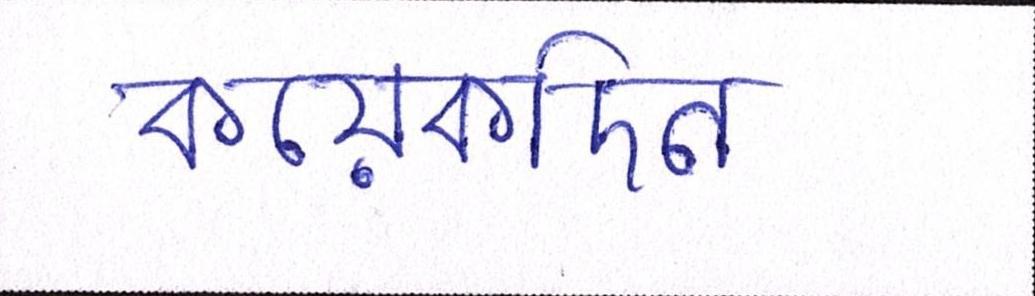 কয়েকদিন